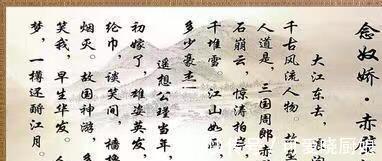 念奴娇·赤
大江东去，
千古风流人物。故垒
人道是，三国周郎赤
石崩云，惊涛拍岸
千堆雪。江山如
多少豪杰
遥想公瑾当年，
初嫁了，雄姿英发
纶巾，谈笑间，樯橹
烟灭。故国神游，多
笑我，早生华发。人
梦，一樽还酹江月